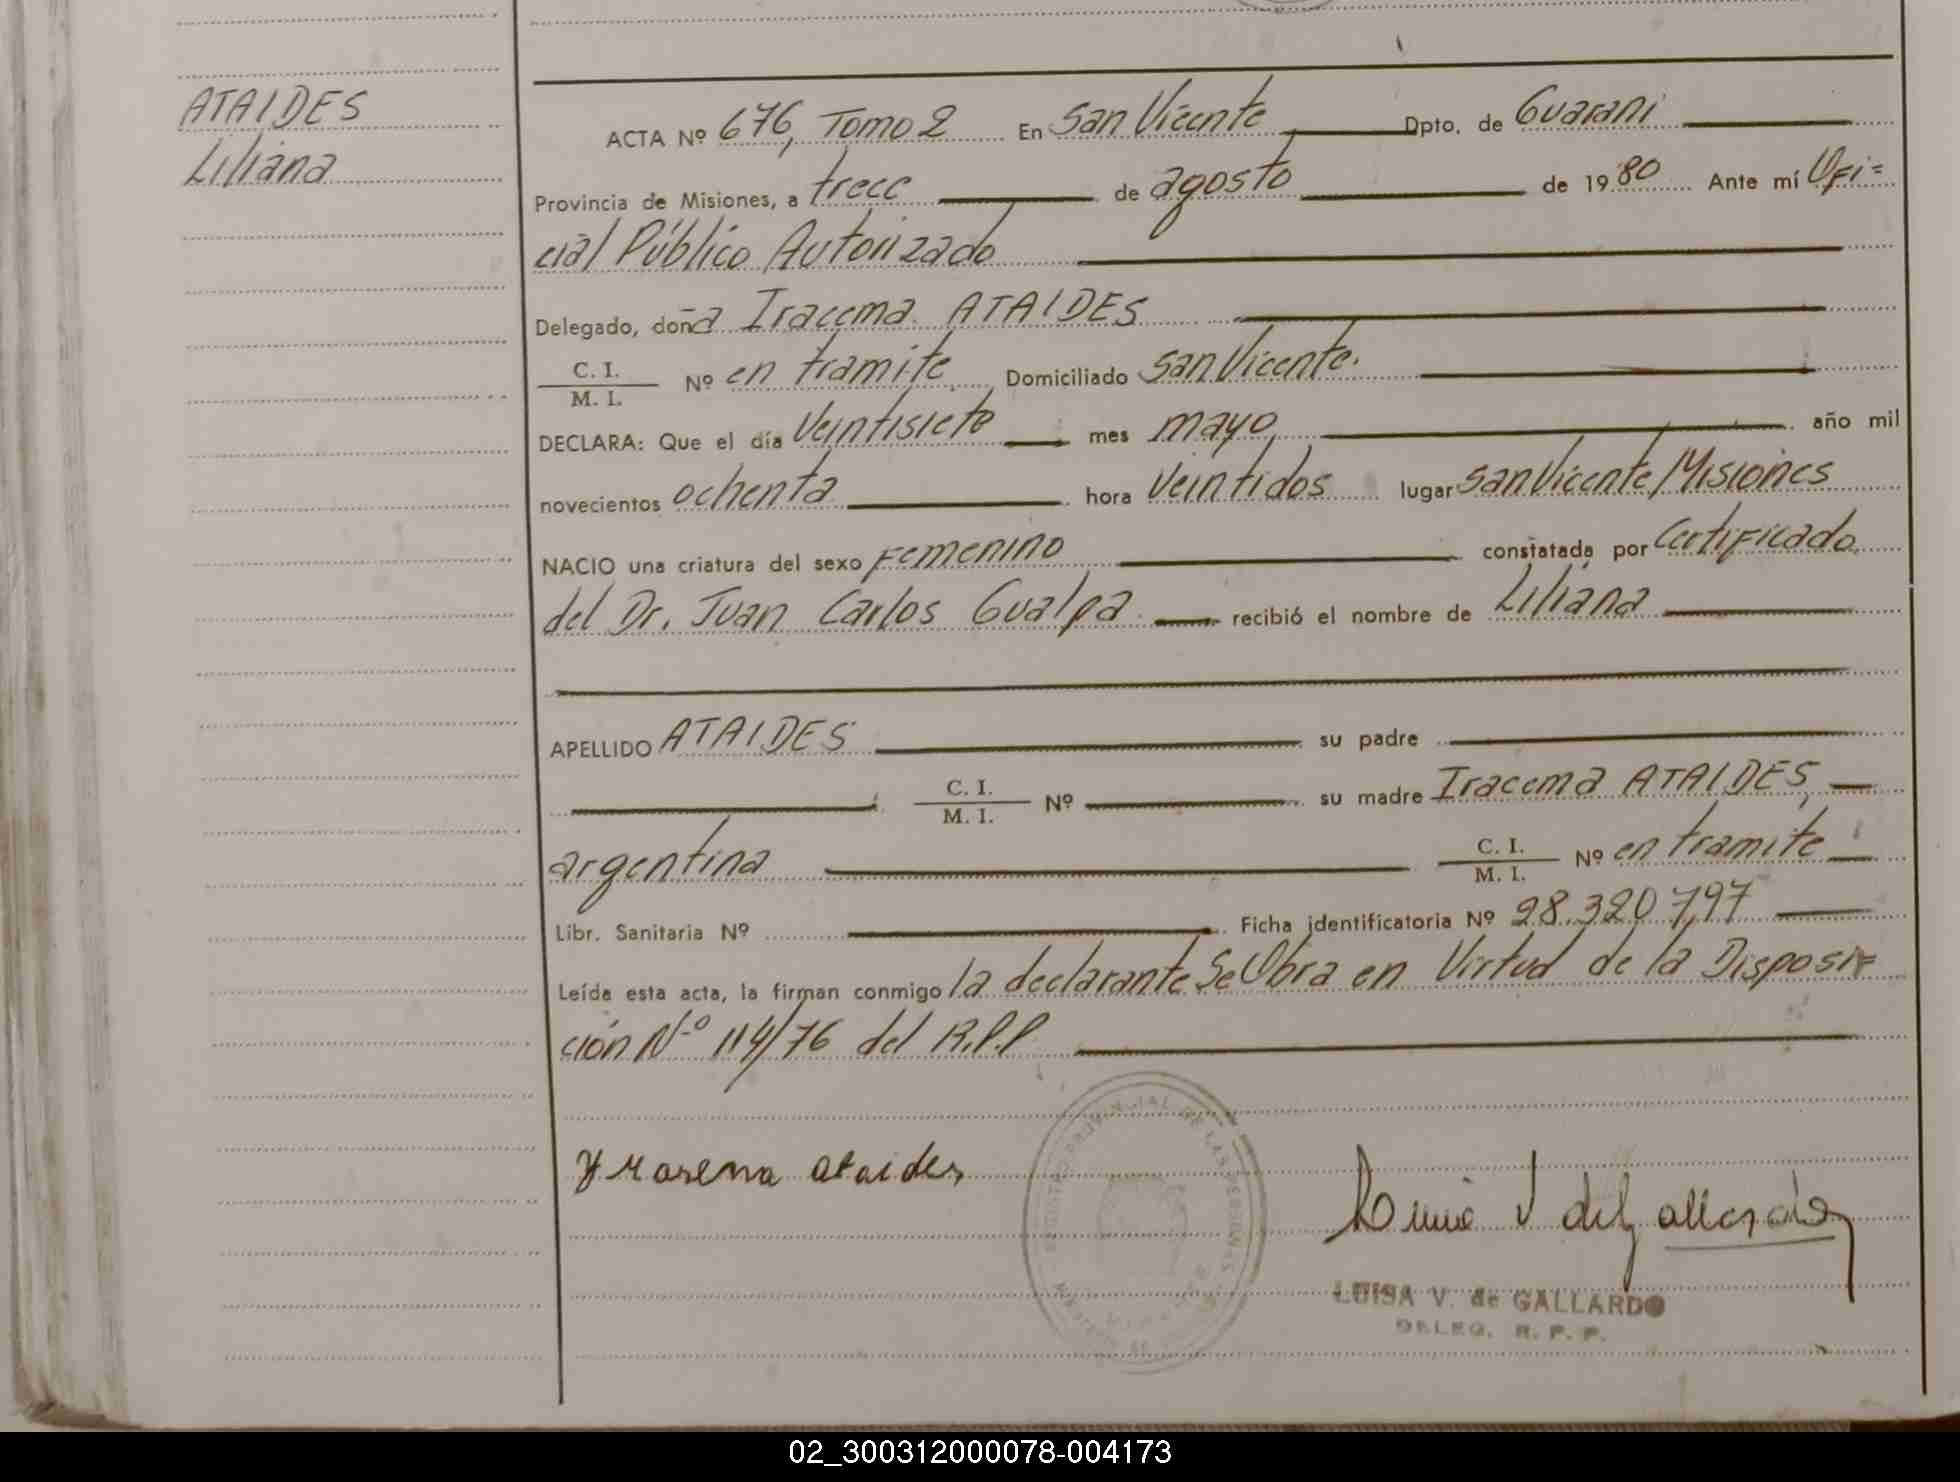 ATAIDES
Liliana
ACTA Nº 676, Tomo 2 En San Vicente Dpto. de Guarani
Provincia de Misiones, a trece de agosto de 1980 Ante mí Ofi=
cial Público Autorizado
Delegado, doña Iracema ATAIDES
C. I.
M. I.
Nº en tramite Domiciliado San Vicente.
DECLARA: Que el día Veintisiete mes mayo, año mil
novecientos ochenta hora Veintidos lugar San Vicente/Misiones
NACIO una criatura del sexo Femenino constatada por Certificado
del Dr. Juan Carlos Gualpa recibió el nombre de Liliana
APELLIDO ATAIDES su padre
C. I.
M. I.
Nº su madre Iracema ATAIDES,
argentina C. I.
M. I.
Nº en tramite
Libr. Sanitaria Nº Ficha identificatoria Nº 28.320.797
Leída esta acta, la firman conmigo la declarante Se Obra en Virtud de la Disposi=
ción Nº 114/76 del R.P.P
ataides
LUISA V. de GALLARDO
DELEG. R. P. P.
02_300312000078-004173